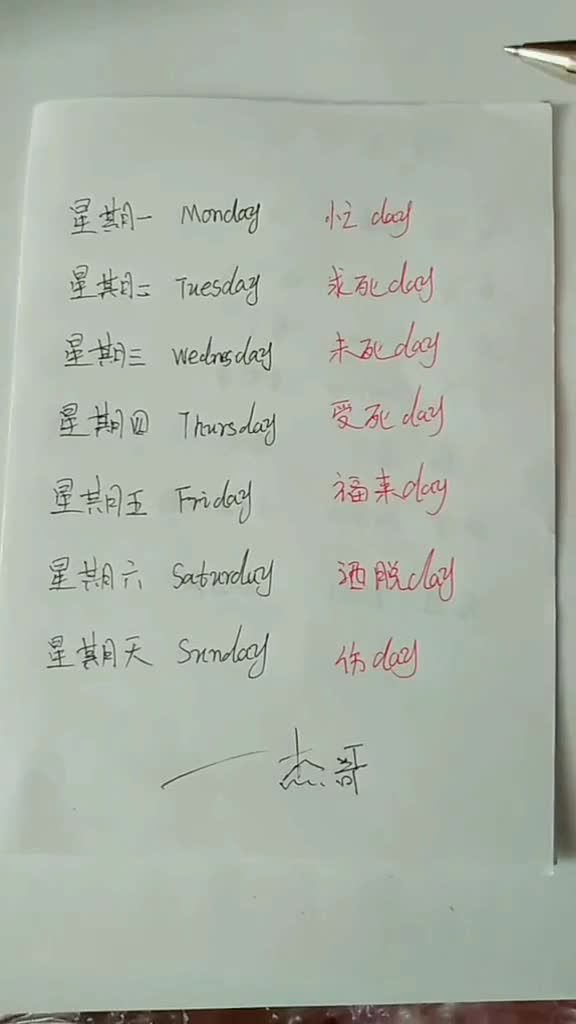 星期一 Monday 忙 day
星期二 Tuesday 求死day
星期三 Wednesday 未死day
星期四 Thursday 受死 day
星期五 Friday 福来day
星期六 Saturday 洒脱day
星期天 Sunday 伤day
一 杰哥